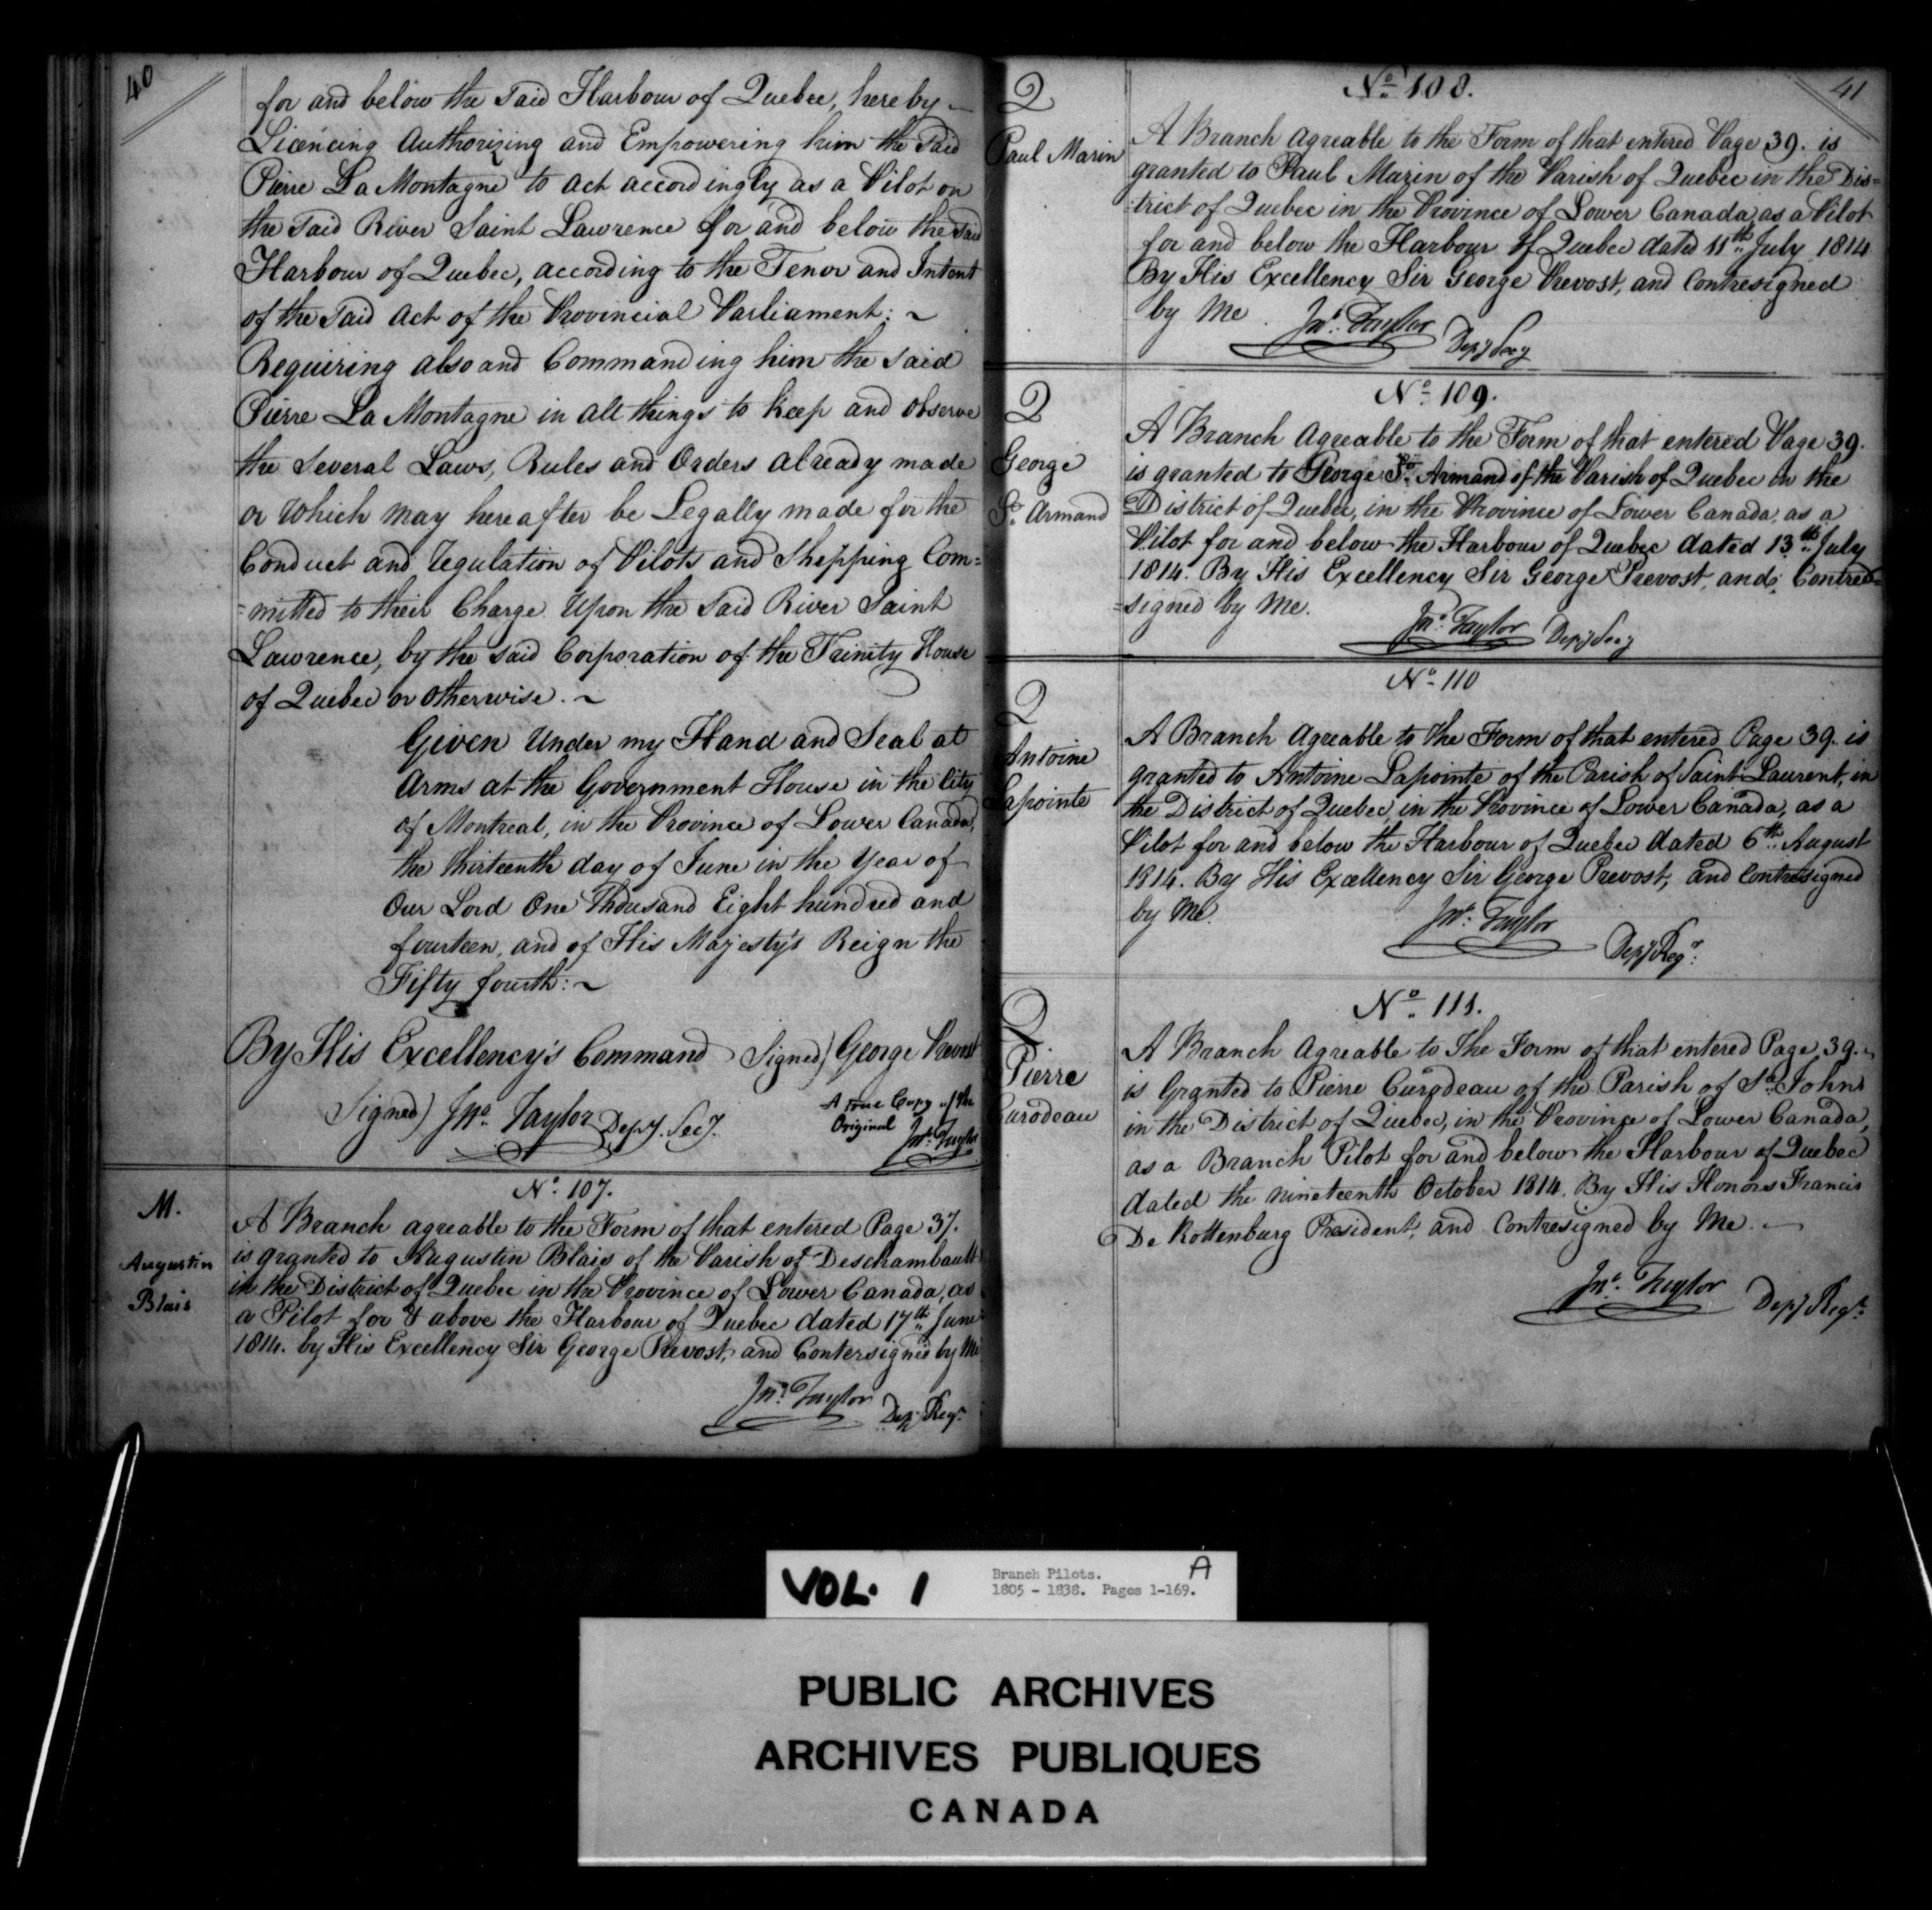 40
for and below the said Harbour of Quebec, hereby
Licencing Authorizing and Empowering him the said
Pierre La Montagne to act accordingly as a Pilot on
the said River Saint Lawrence for and below the said
Harbour of Quebec, according to the Tenor and Intent
of the said Act of the Provincial Parliament: ~
Requiring also and Commanding him the said
Pierre La Montagne in all things to keep and observe
the several Laws, Rules and Orders already made
or which may hereafter be Legally made for the
Conduct and regulation of Pilots and Shepping Com=
=mitted to their Charge Upon the said River Saint
Lawrence, by the said Corporation of the Trinity House
of Quebec or otherwise. ~
Given Under my Hand and Seal at
Arms at the Government House in the City
of Montreal, in the Province of Lower Canada,
the thirteenth day of June in the Year of
Our Lord One Thousand Eight hundred and
fourteen, and of His Majesty's Reign the
Fifty fourth: ~
By His Excellency's Command Signed) George Prevost
Signed) Jno. Taylor Depy. Secy.
A true Copy of the
Original Jno. Taylor
No. 107.
M.
Augustin
Blais
A Branch agreable to the Form of that entered Page 37.
is granted to Augustin Blais of the Parish of Deschambault
in the District of Quebec in the Province of Lower Canada, as
a Pilot for & above the Harbour of Quebec dated 17th June
1814. by His Excellency Sir George Prevost, and Contersigned by Me
Jno. Taylor Depy Regr.
41
No. 108.
2
Paul Marin
A Branch Agreable to the Form of that entered Page 39. is
granted to Paul Marin of the Parish of Quebec in the Dis=
=trict of Quebec in the Province of Lower Canada, as a Pilot
for and below the Harbour of Quebec dated 11th July 1814
By His Excellency Sir George Prevost, and Contresigned
by Me Jno. Taylor Depy Secy
No. 109.
2
George
St. Armand
A Branch Agreable to the Form of that entered Page 39.
is granted to George St. Armand of the Parish of Quebec in the
District of Quebec, in the Province of Lower Canada, as a
Pilot for and below the Harbour of Quebec dated 13th July
1814. By His Excellency Sir George Prevost, and Contre=
=signed by Me.
Jno. Taylor Depy Secy
No. 110
2
Antoine
Lapointe
A Branch Agreable to the Form of that entered Page 39. is
granted to Antoine Lapointe of the Parish of Saint Laurent, in
the District of Quebec, in the Province of Lower Canada, as a
Pilot for and below the Harbour of Quebec dated 6th August
1814. By His Excellency Sir George Prevost, and Contresigned
by Me. Jno. Taylor
Depy Regr.
No. 111.
2.
Pierre
Curodeau
A Branch Agreable to The Form of that entered Page 39.
is Granted to Pierre Curodeau of the Parish of St. John
in the District of Quebec, in the Province of Lower Canada,
as a Branch Pilot for and below the Harbour of Quebec
dated the nineteenth October 1814. By His Honor Francis
De Rottenburg President, and Contresigned by Me.
Jno. Taylor Depy Regr.
VOL. 1
Branch Pilots.
1805 - 1838. Pages 1-169.
A
PUBLIC ARCHIVES
ARCHIVES PUBLIQUES
CANADA